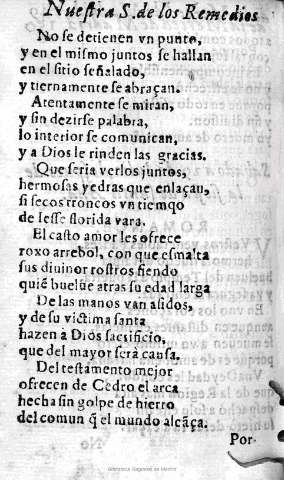 Nueſtra S. de los Remedios
No ſe detienen vn punto,
y en el miſmo juntos ſe hallan
en el ſitio ſeñalado,
y tiernamente ſe abraçan.
Atentamente ſe miran,
y ſin dezirſe palabra,
lo interior ſe comunican,
y a Dios le rinden las gracias.
Que ſeria verlos juntos,
hermoſas yedras que enlaçau,
ſi ſecos troncos vn tiempo
de Ieſſe florida vara.
El caſto amor les ofrece
roxo arrebol, con que eſmalta
ſus diuinor roſtros ſiendo
quiẽ buelue atras ſu edad larga
De las manos van aſidos,
y de ſu victima ſanta
hazen à Dios ſacrificio,
que del mayor ſerà cauſa.
Del teſtamento mejor
ofrecen de Cedro el arca
hecha ſin golpe de hierro
del comun q̃ el mundo alcãça.
Por-
Biblioteca Regional de Madrid